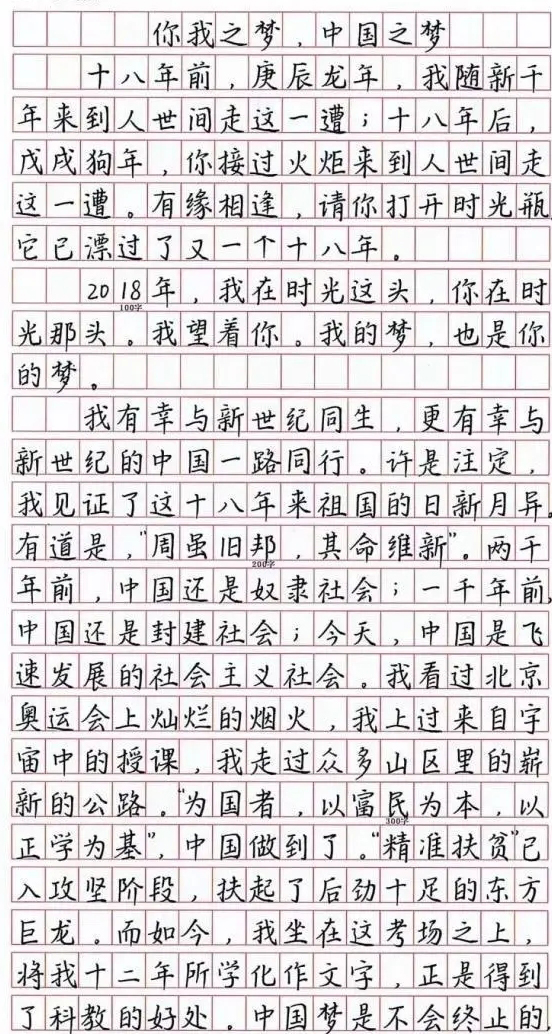 你我之梦，中国之梦
十八年前，庚辰龙年，我随新千
年来到人世间走这一遭；十八年后，
戊戌狗年，你接过火炬来到人世间走
这一遭。有缘相逢，请你打开时光瓶
它已漂过了又一个十八年。
2018年，我在时光这头，你在时
100字
光那头。我望着你。我的梦，也是你
的梦。
我有幸与新世纪同生，更有幸与
新世纪的中国一路同行。许是注定，
我见证了这十八年来祖国的日新月异。
有道是，“周虽旧邦，其命维新”。两千
200字
年前，中国还是奴隶社会；一千年前，
中国还是封建社会；今天，中国是飞
速发展的社会主义社会。我看过北京
奥运会上灿烂的烟火，我上过来自宇
宙中的授课，我走过众多山区里的崭
新的公路。“为国者，以富民为本，以
300字
正学为基”，中国做到了。“精准扶贫”已
入攻坚阶段，扶起了后劲十足的东方
巨龙。而如今，我坐在这考场之上，
将我十二年所学化作文字，正是得到
了科教的好处。中国梦是不会终止的